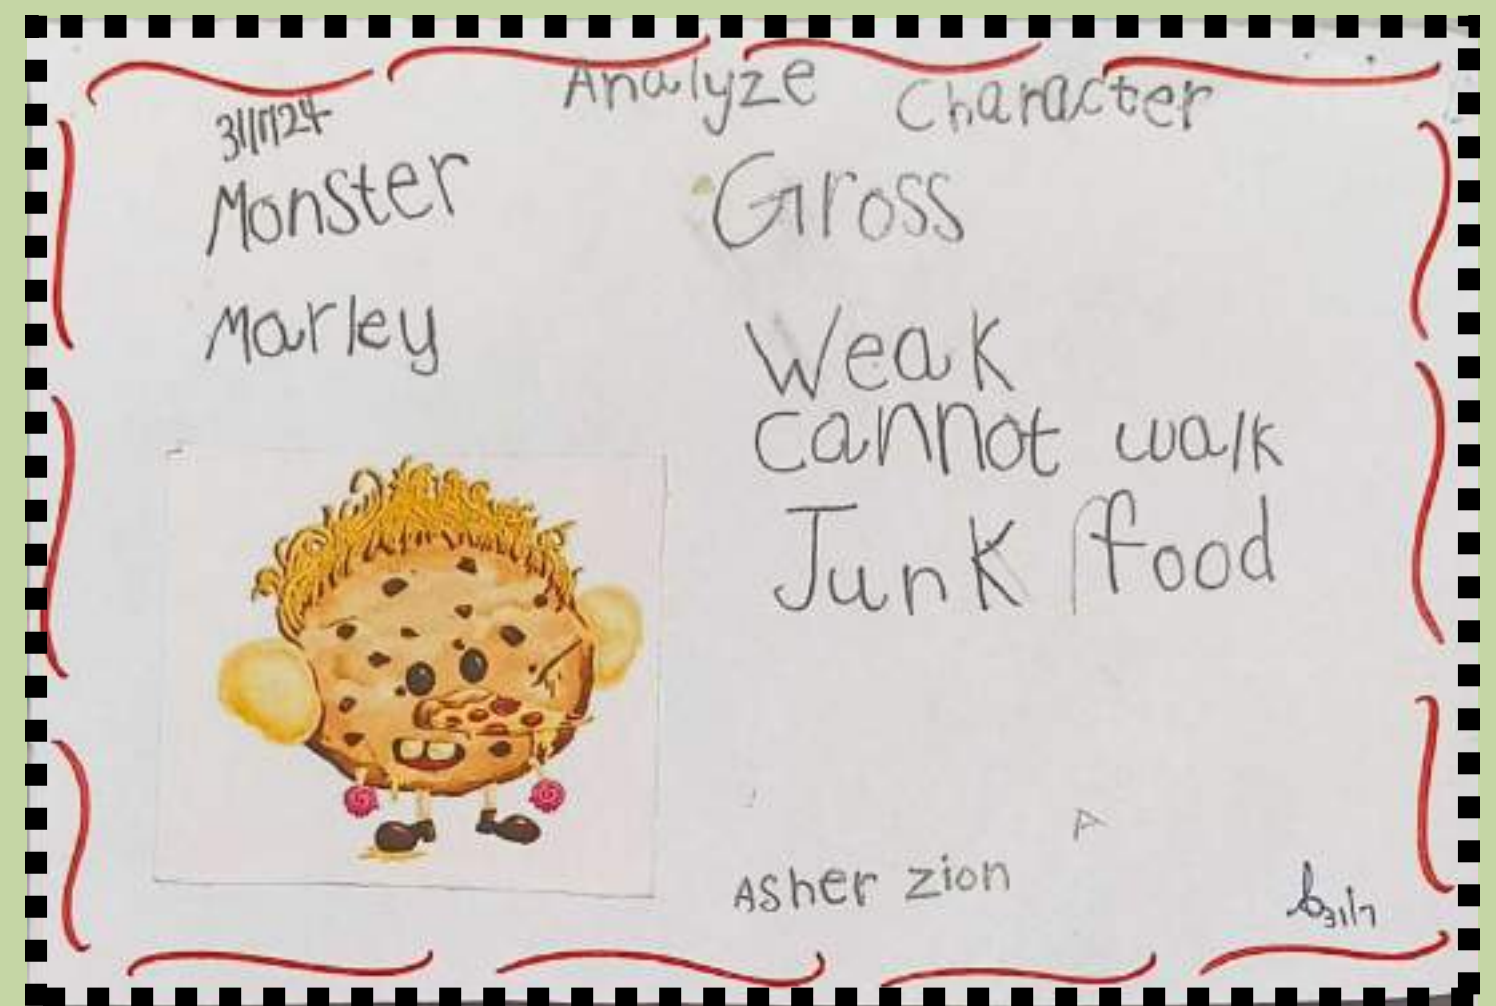 Analyze Character
31/7/24
Monster
Marley
Gross
Weak
cannot walk
Junk food
A
Asher zion
31/7